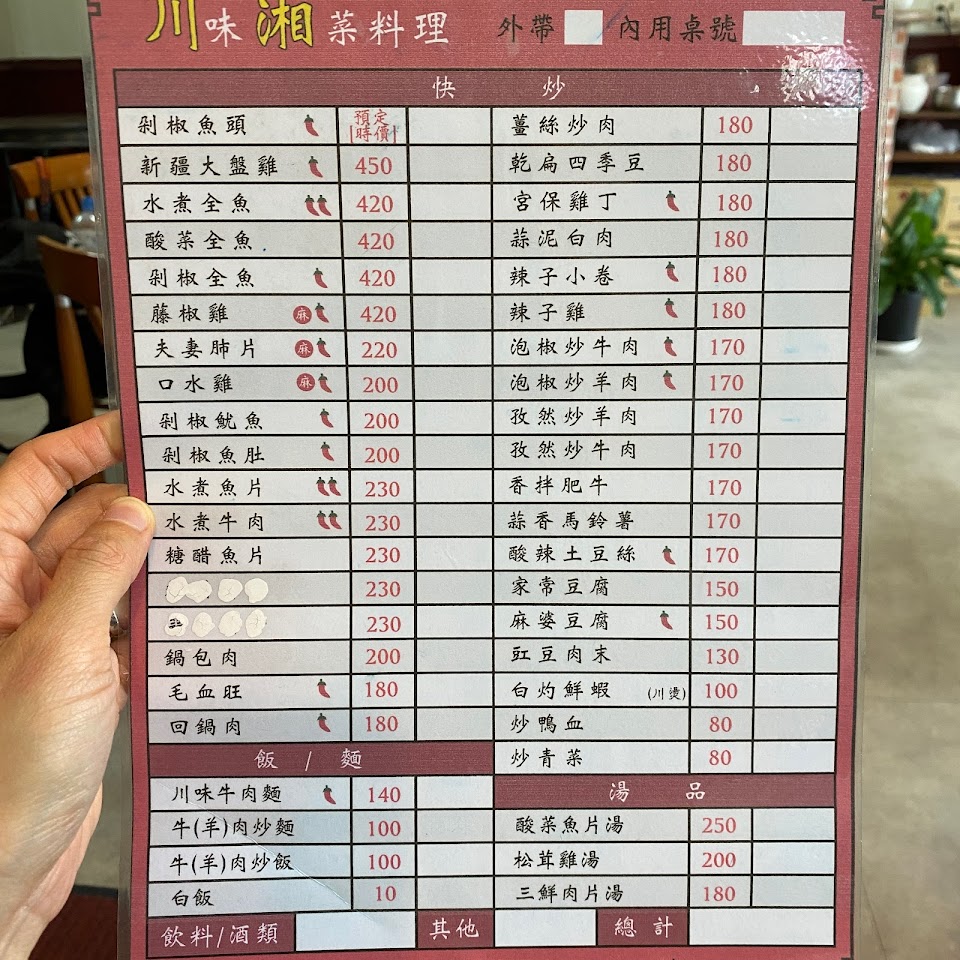 川味湘菜料理 外帶 / 內用桌號
快炒
剁椒魚頭 預定時價
新疆大盤雞 450
水煮全魚 420
酸菜全魚 420
剁椒全魚 420
藤椒雞 麻 420
夫妻肺片 麻 220
口水雞 麻 200
剁椒魷魚 200
剁椒魚肚 200
水煮魚片 230
水煮牛肉 230
糖醋魚片 230
230
230
鍋包肉 200
毛血旺 180
回鍋肉 180
飯 / 麵
川味牛肉麵 140
牛(羊)肉炒麵 100
牛(羊)肉炒飯 100
白飯 10
薑絲炒肉 180
乾扁四季豆 180
宮保雞丁 180
蒜泥白肉 180
辣子小卷 180
辣子雞 180
泡椒炒牛肉 170
泡椒炒羊肉 170
孜然炒羊肉 170
孜然炒牛肉 170
香拌肥牛 170
蒜香馬鈴薯 170
酸辣土豆絲 170
家常豆腐 150
麻婆豆腐 150
豇豆肉末 130
白灼鮮蝦 (川燙) 100
炒鴨血 80
炒青菜 80
湯品
酸菜魚片湯 250
松茸雞湯 200
三鮮肉片湯 180
飲料/酒類 其他 總計